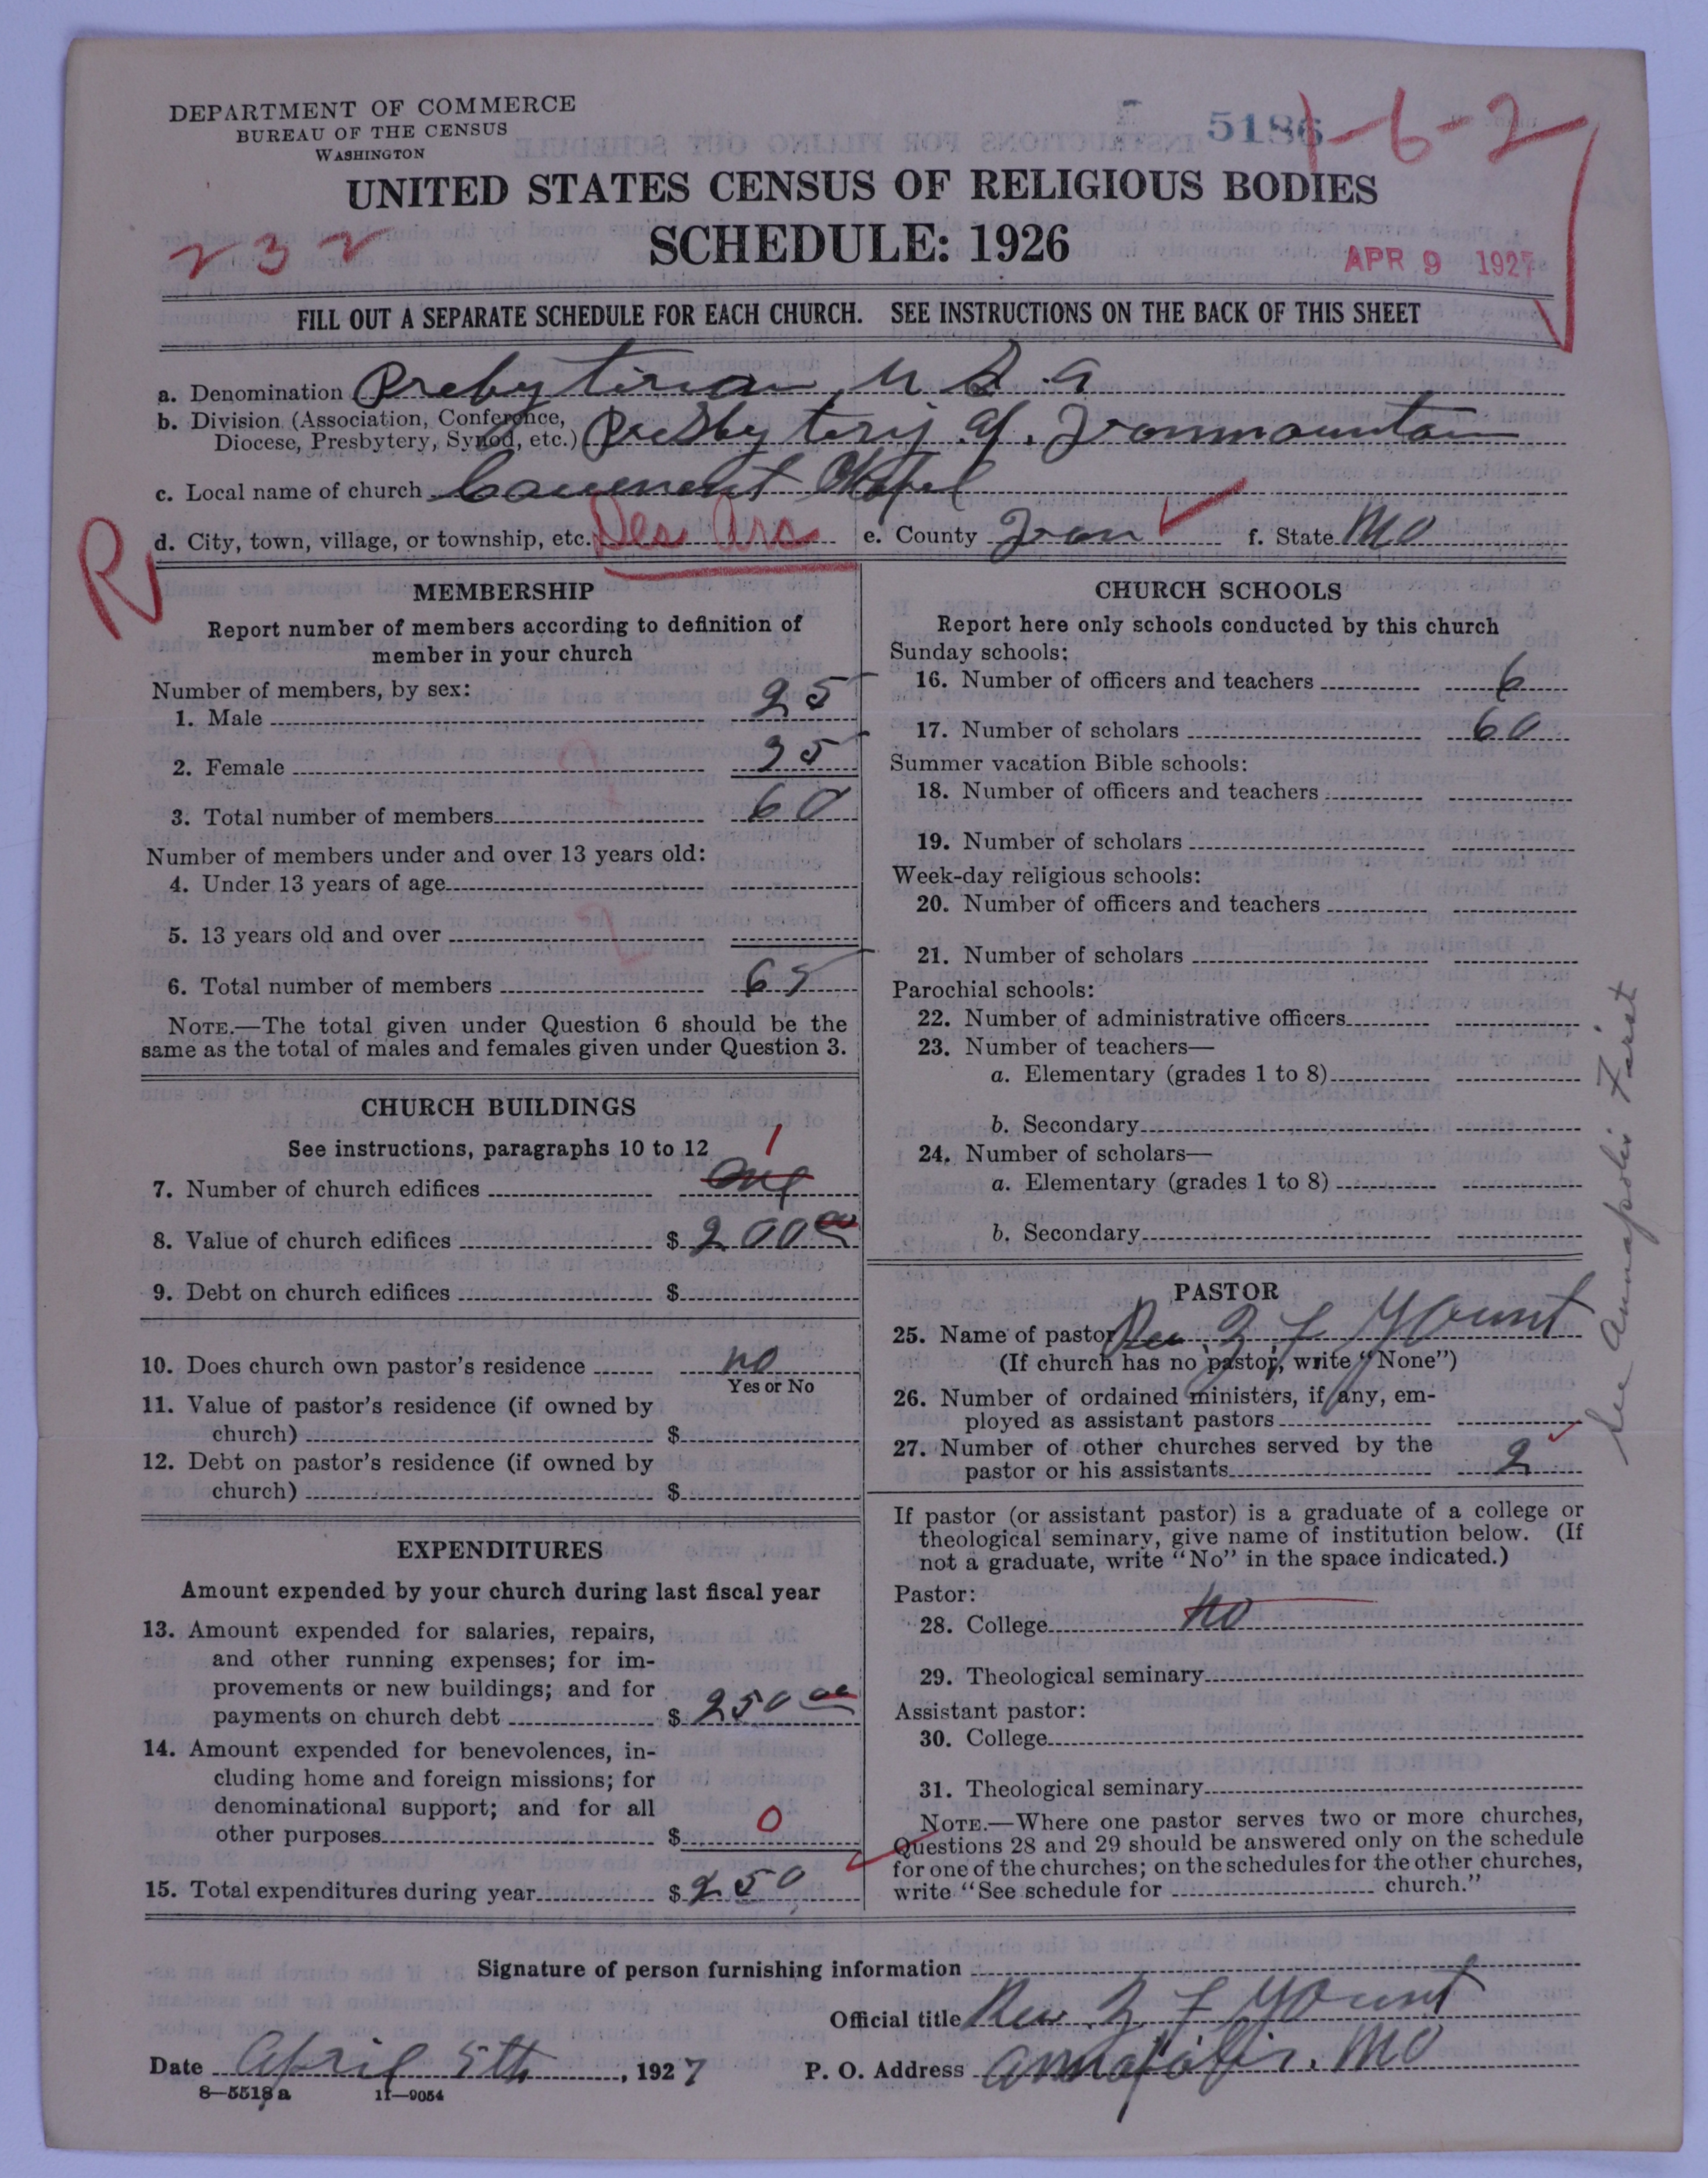 DEPARTMENT OF COMMERCE
BUREAU OF THE CENSUS
WASHINGTON
5186
1-6-2
UNITED STATES CENSUS OF RELIGIOUS BODIES
SCHEDULE: 1926
232
APR 9 1927
FILL OUT A SEPARATE SCHEDULE FOR EACH CHURCH. SEE INSTRUCTIONS ON THE BACK OF THIS SHEET
a. Denomination Presbyterian, U.S.A
b. Division (Association, Conference,
Diocese, Presbytery, Synod, etc.) Presbytery of Ironmountain
c. Local name of church Chapel
d. City, town, village, or township, etc. Des Arc e. County Iron f. State MO
R
MEMBERSHIP
Report number of members according to definition of
member in your church
Number of members, by sex:
1. Male 25
2. Female 35
3. Total number of members 60
Number of members under and over 13 years old:
4. Under 13 years of age
5. 13 years old and over
6. Total number of members 65
NOTE.—The total given under Question 6 should be the
same as the total of males and females given under Question 3.
CHURCH BUILDINGS
See instructions, paragraphs 10 to 12
1
7. Number of church edifices One
8. Value of church edifices $ 200 00
9. Debt on church edifices $
10. Does church own pastor's residence no
Yes or No
11. Value of pastor's residence (if owned by
church) $
12. Debt on pastor's residence (if owned by
church) $
EXPENDITURES
Amount expended by your church during last fiscal year
13. Amount expended for salaries, repairs,
and other running expenses; for im-
provements or new buildings; and for
payments on church debt $ 250 00
14. Amount expended for benevolences, in-
cluding home and foreign missions; for
denominational support; and for all
other purposes $ 0
15. Total expenditures during year $ 250
CHURCH SCHOOLS
Report here only schools conducted by this church
Sunday schools:
16. Number of officers and teachers 6
17. Number of scholars 60
Summer vacation Bible schools:
18. Number of officers and teachers
19. Number of scholars
Week-day religious schools:
20. Number of officers and teachers
21. Number of scholars
Parochial schools:
22. Number of administrative officers
23. Number of teachers—
a. Elementary (grades 1 to 8)
b. Secondary
24. Number of scholars—
a. Elementary (grades 1 to 8)
b. Secondary
PASTOR
25. Name of pastor Rev. Z F Yount
(If church has no pastor, write "None")
26. Number of ordained ministers, if any, em-
ployed as assistant pastors
27. Number of other churches served by the
pastor or his assistants 2
If pastor (or assistant pastor) is a graduate of a college or
theological seminary, give name of institution below. (If
not a graduate, write "No" in the space indicated.)
Pastor:
28. College no
29. Theological seminary
Assistant pastor:
30. College
31. Theological seminary
NOTE.—Where one pastor serves two or more churches,
Questions 28 and 29 should be answered only on the schedule
for one of the churches; on the schedules for the other churches,
write "See schedule for church."
See Annapolis First
Signature of person furnishing information
Official title Rev. Z F Yount
Date April 5th, 1927 P. O. Address Annapolis, MO
8—5518 a 11—9054